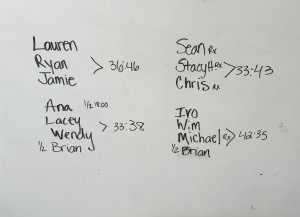 Lauren
Ryan > 36:46
Jamie
Sean Rx
Stacy H. Rx > 33:43
Chris Rx
Ana 1/2
Lacey
Wendy > 33:38
1/2 Brian
Ivo
Wim
Michael Rx > 42:35
1/2 Brian